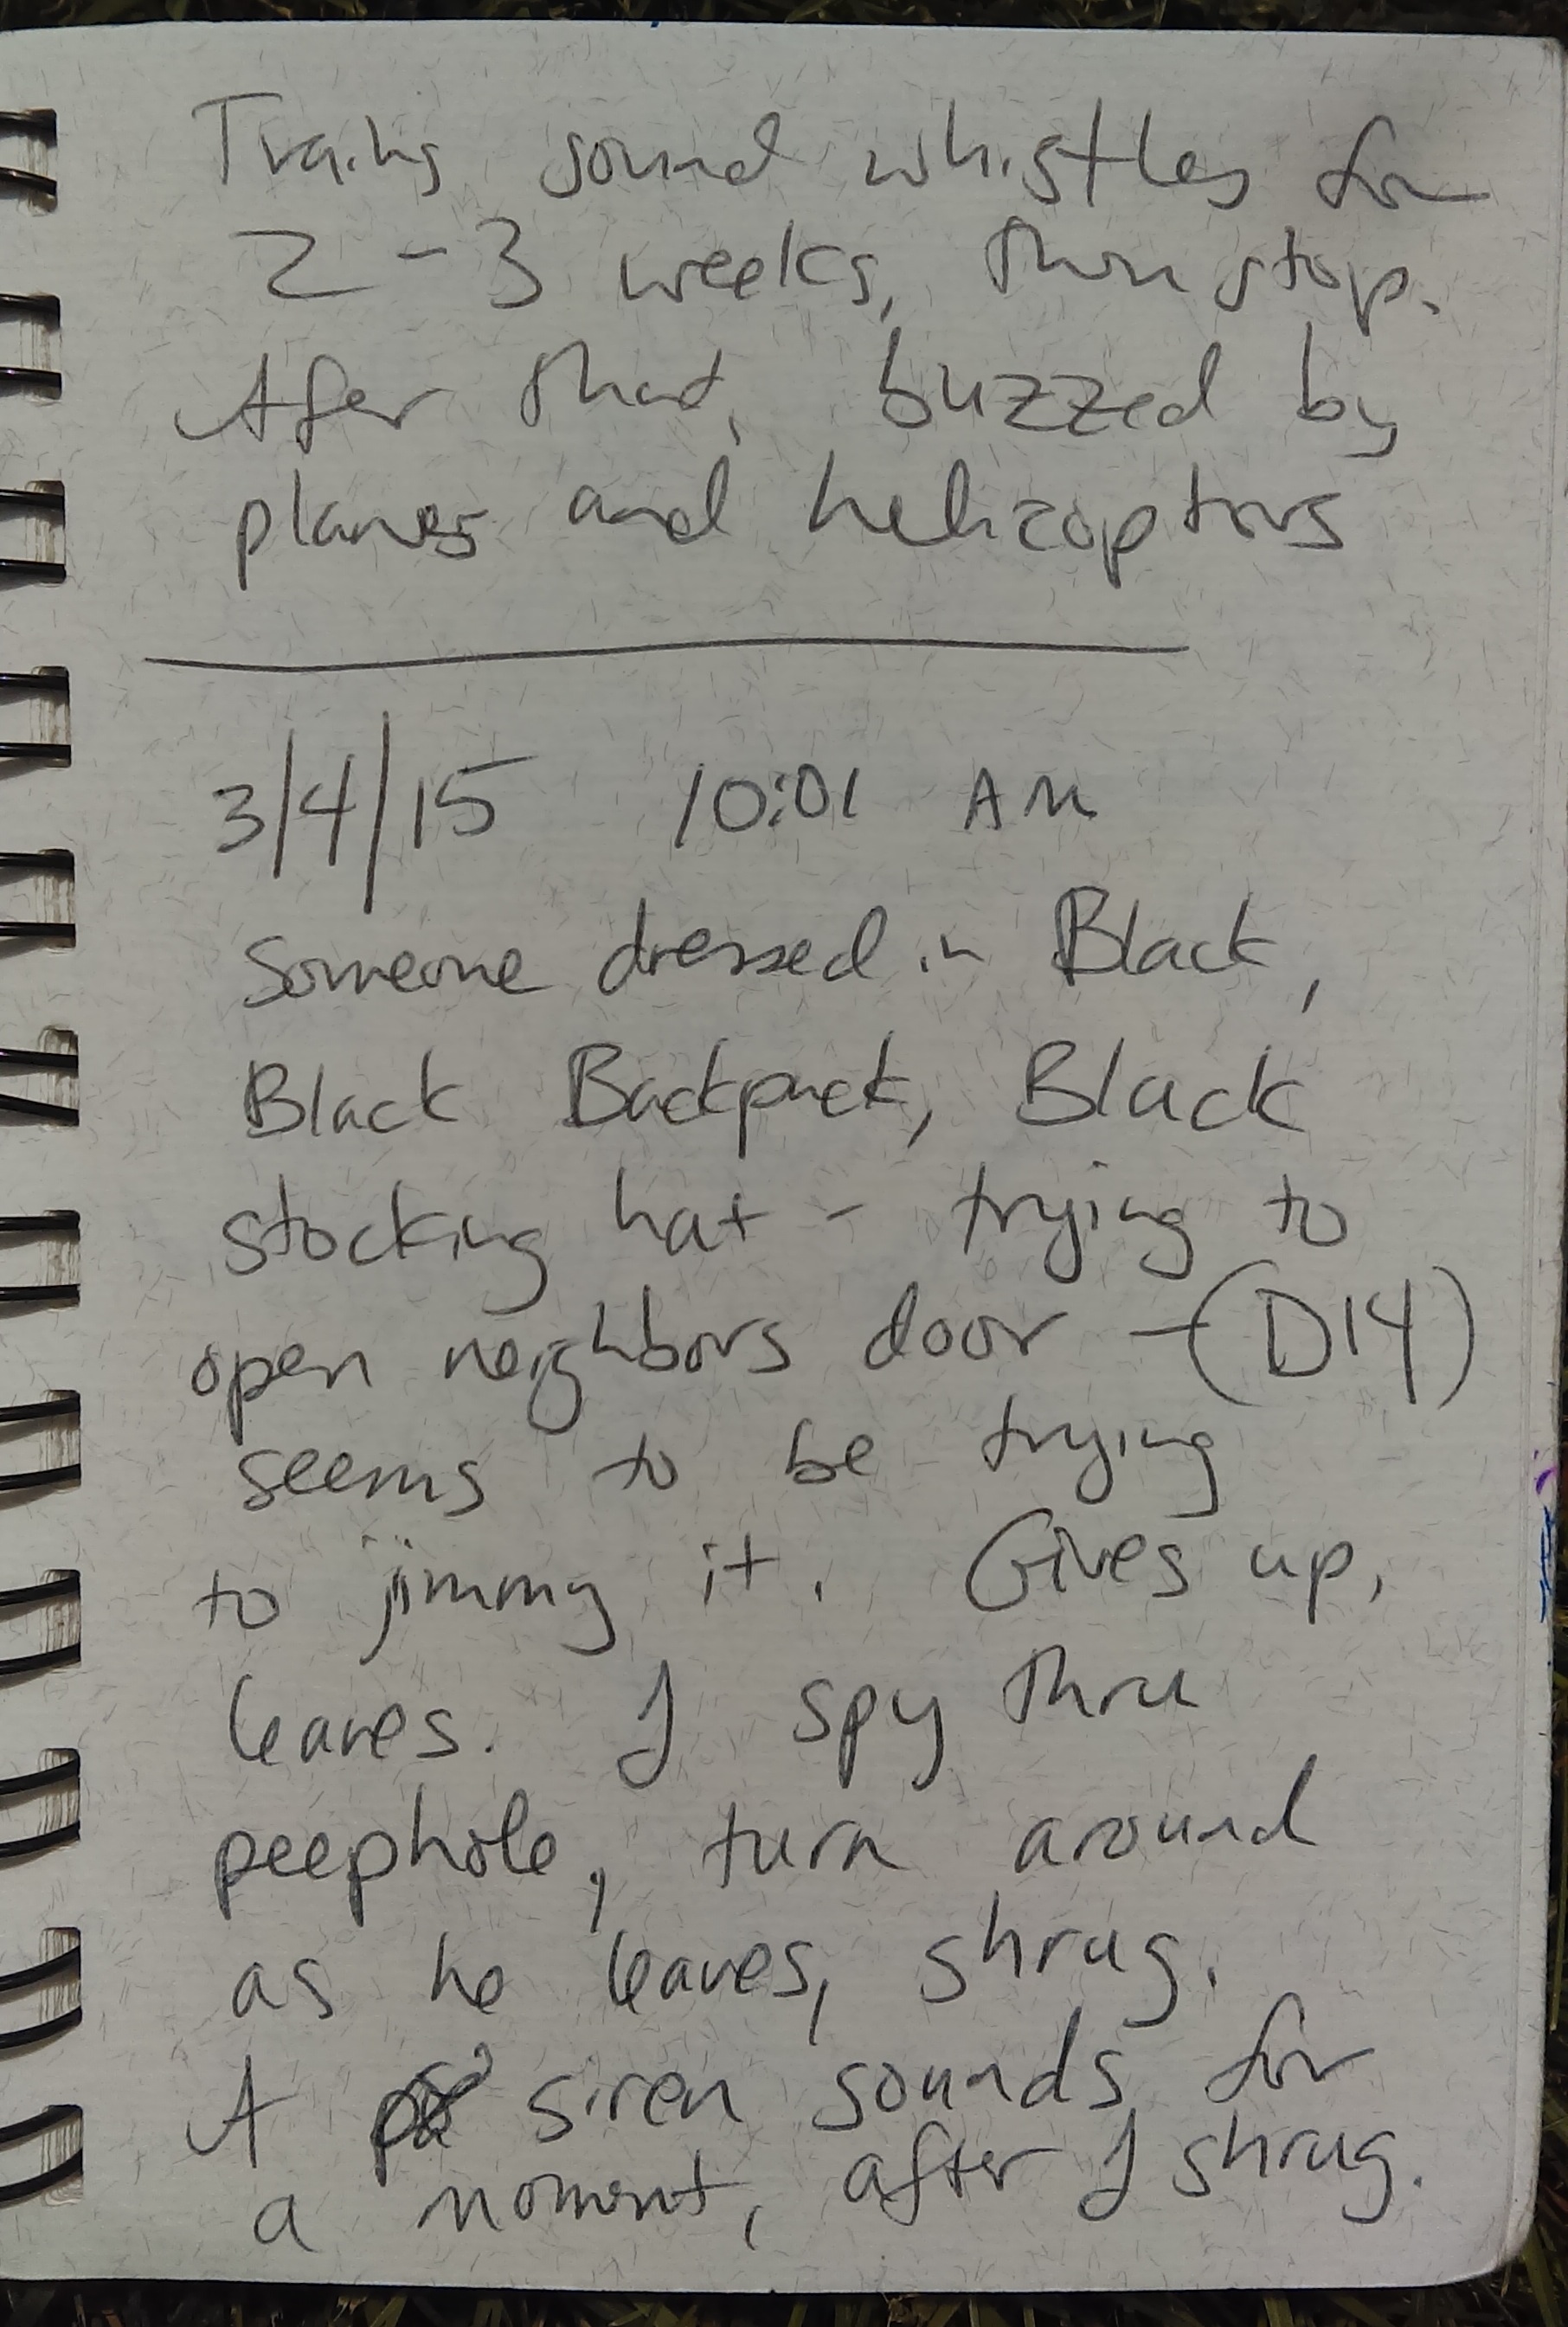 Trains sound whistles for
2-3 weeks, then stop.
After that, buzzed by
planes and helicopters
3/4/15 10:01 AM
Someone dressed in Black,
Black Backpack, Black
stocking hat - trying to
open neighbors door - (D14)
seems to be trying
to jimmy it. Gives up,
leaves. I spy thru
peephole, turn around
as he leaves, shrug.
A siren sounds for
a moment, after I shrug.